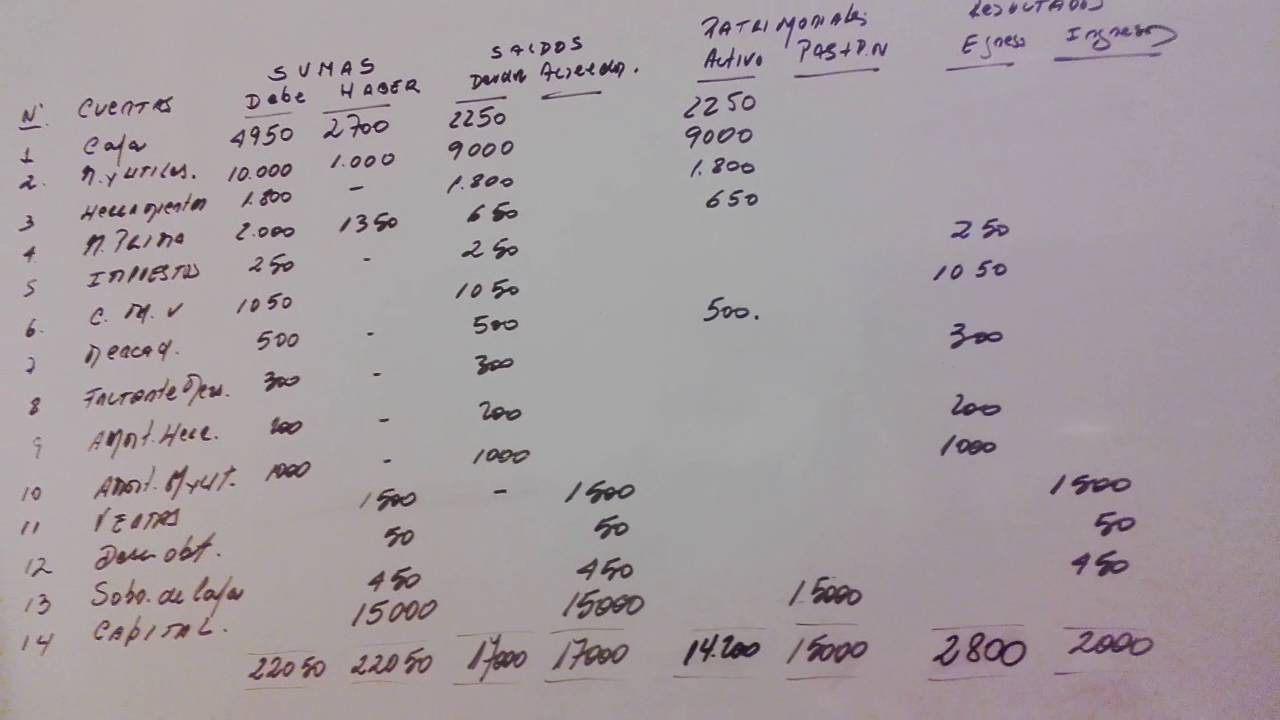 SUMAS SALDOS PATRIMONIALES RESULTADOS
N° CUENTAS Debe HABER Deudor Acreedor. Activo PAS+P.N Egreso Ingreso
1 Caja 4950 2700 2250 2250
2. M. y UTILES. 10.000 1.000 9000 9000
3 Herramientas 1.800 - 1.800 1.800
4 M. PRIMA 2.000 1350 650 650
5 IMPUESTOS 250 - 250 250
6. C. M. V 1050 1050 1050
7 Mercad. 500 - 500 500.
8 Faltante 300 - 300 300
9 Amort. Herr. 200 - 200 200
10 Amort. M y UT. 1000 - 1000 1000
11 VENTAS 1500 - 1500 1500
12 Desc. obt. 50 50 50
13 Sob. de Caja 450 450 450
14 CAPITAL. 15000 15000 15000
22050 22050 17000 17000 14.200 15000 2800 2000